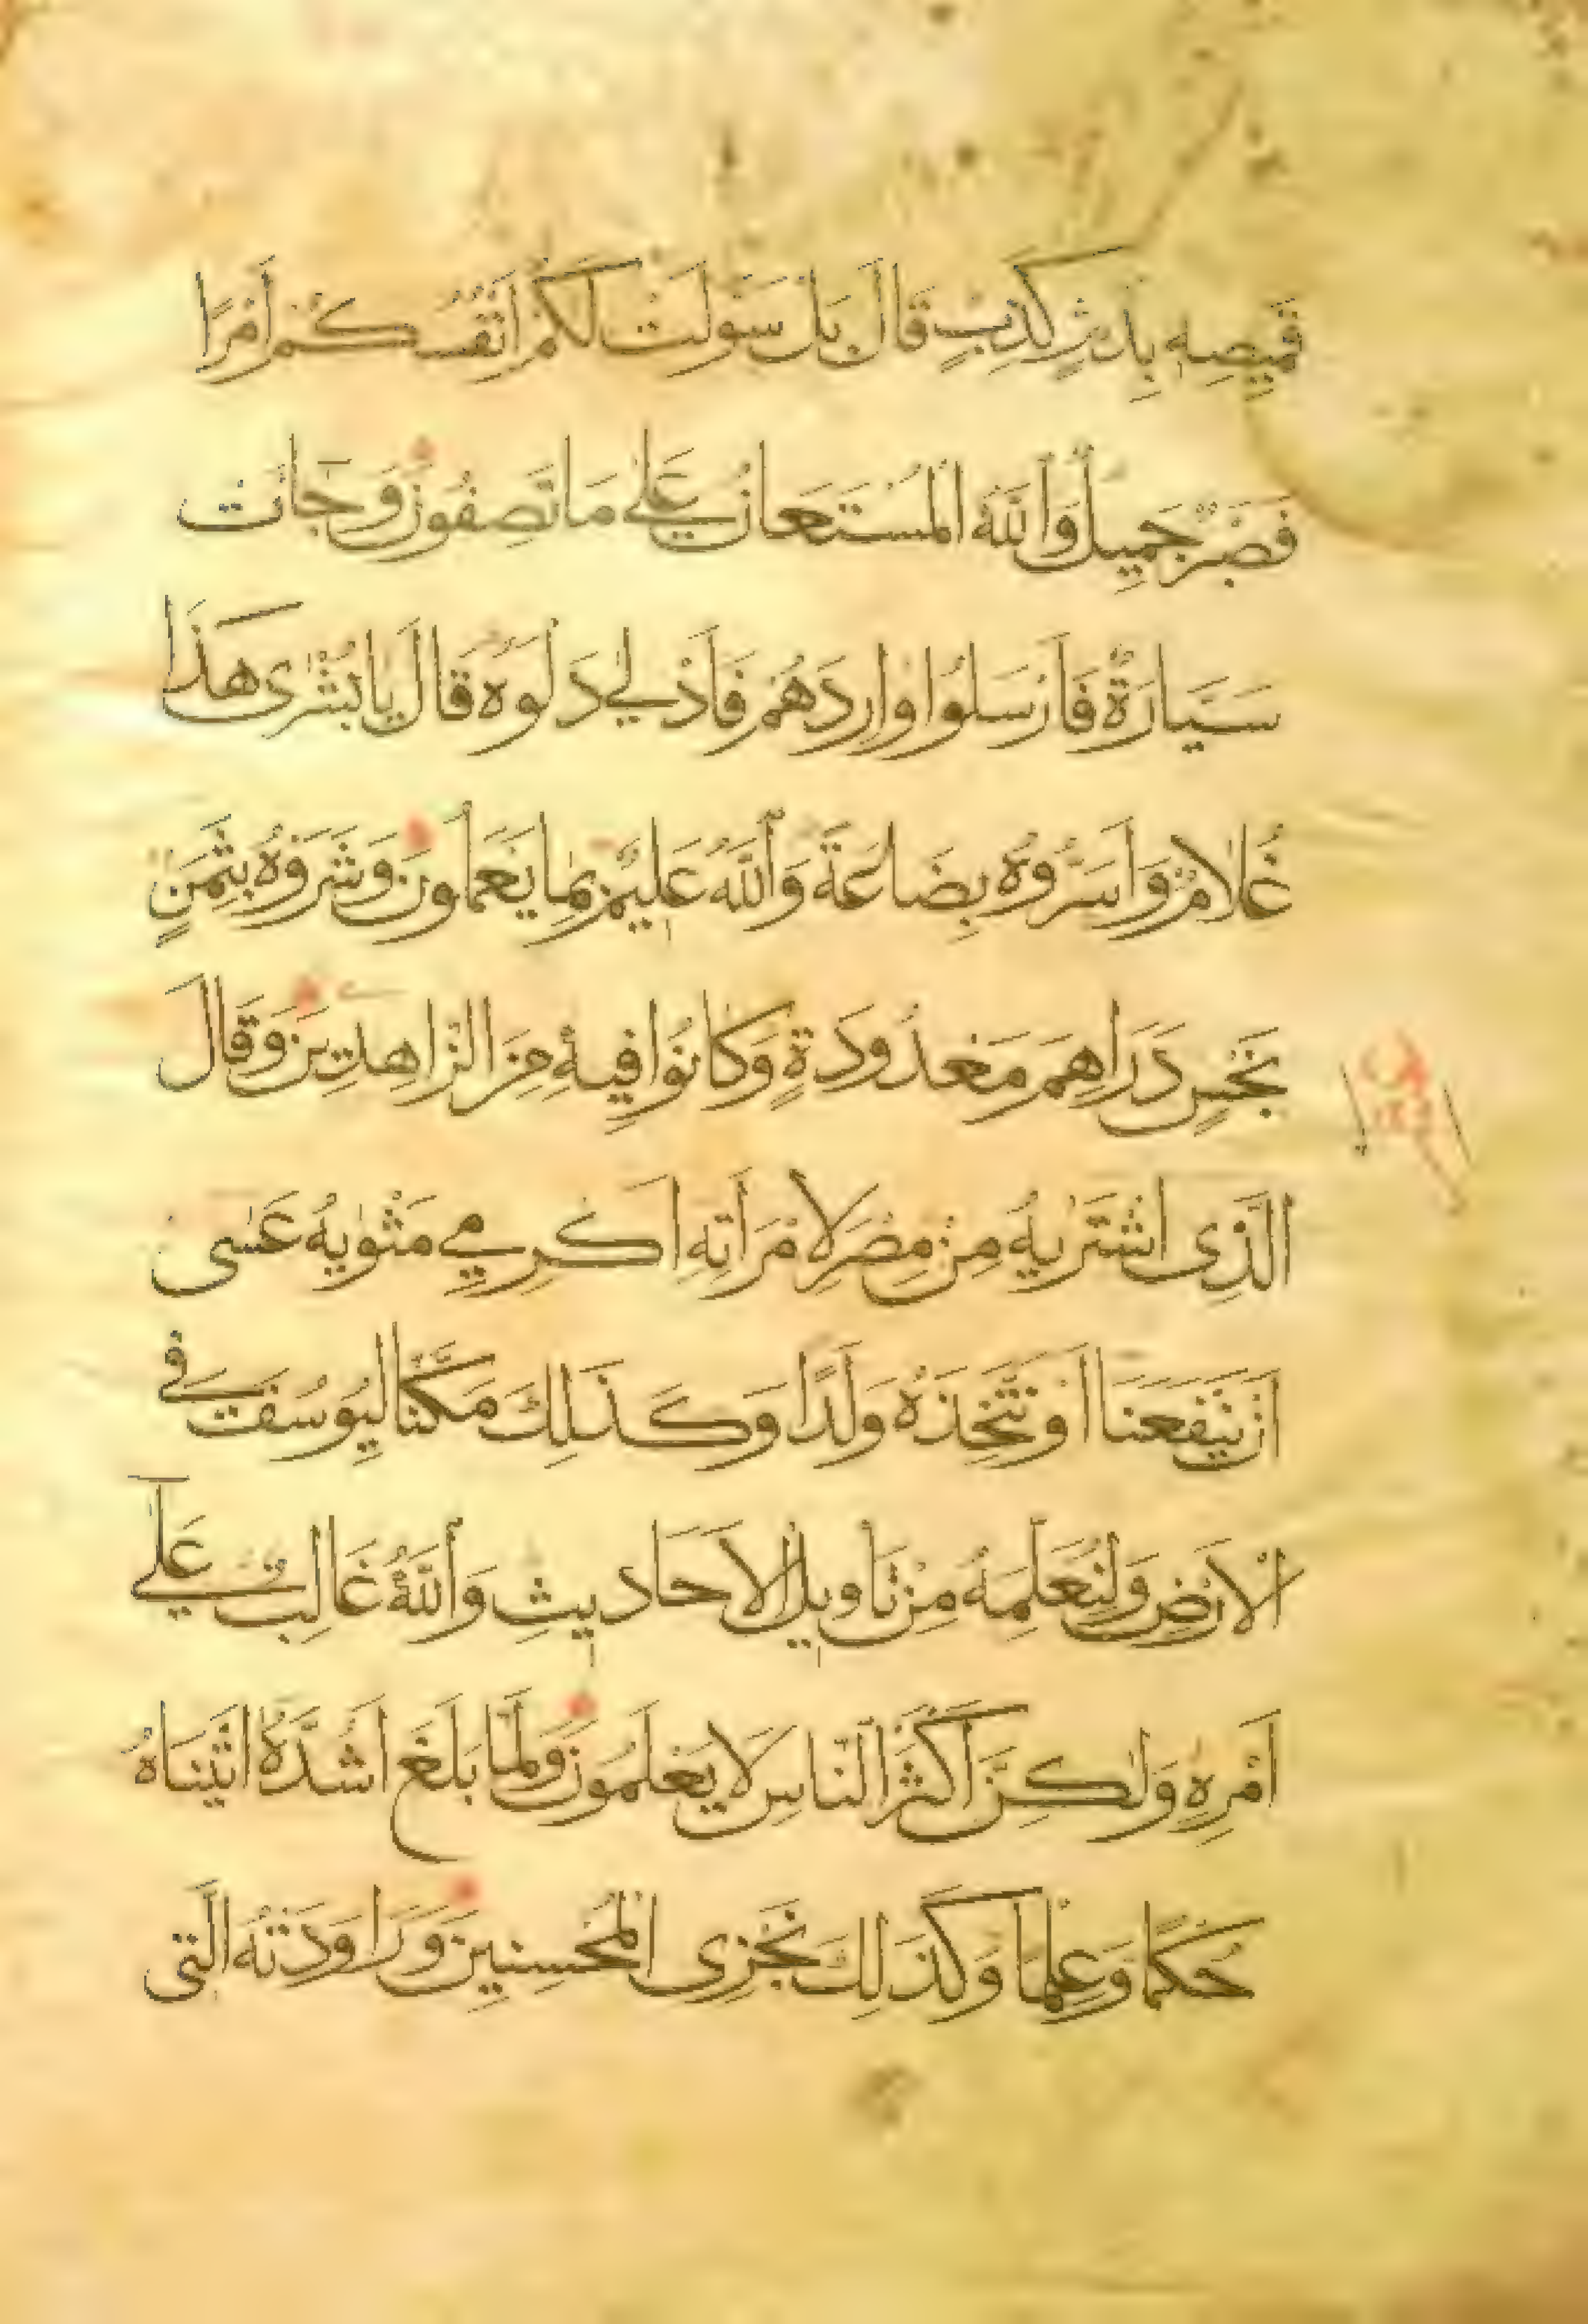 قَمِيصِهِ بِدَمٍ كَذِبٍ قَالَ بَلْ سَوَّلَتْ لَكُمْ اَنْفُسُكُمْ اَمْرًا
فَصَبْرٌ جَمِيلٌ وَاللّٰهُ الْمُسْتَعَانُ عَلٰى مَا تَصِفُونَ وَجَاءَتْ
سَيَّارَةٌ فَاَرْسَلُوا وَارِدَهُمْ فَاَدْلٰى دَلْوَهُ قَالَ يَا بُشْرٰى هَذَا
غُلَامٌ وَاَسَرُّوهُ بِضَاعَةً وَاللّٰهُ عَلِيمٌ بِمَا يَعْمَلُونَ وَشَرَوْهُ بِثَمَنٍ
بَخْسٍ دَرَاهِمَ مَعْدُودَةٍ وَكَانُوا فِيهِ مِنَ الزَّاهِدِينَ وَقَالَ
الَّذِى اشْتَرٰيهُ مِنْ مِصْرَ لِامْرَاَتِهِ اَكْرِمِي مَثْوٰيهُ عَسٰى
اَنْ يَنْفَعَنَا اَوْ نَتَّخِذَهُ وَلَدًا وَكَذَلِكَ مَكَّنَّا لِيُوسُفَ فِى
الْاَرْضِ وَلِنُعَلِّمَهُ مِنْ تَأْوِيلِ الْاَحَادِيثِ وَاللّٰهُ غَالِبٌ عَلٰٓى
اَمْرِهِ وَلٰكِنَّ اَكْثَرَ النَّاسِ لَا يَعْلَمُونَ وَلَمَّا بَلَغَ اَشُدَّهُ اٰتَيْنَاهُ
حُكْمًا وَعِلْمًا وَكَذَلِكَ نَجْزِى الْمُحْسِنِينَ وَرَاوَدَتْهُ الَّتِى